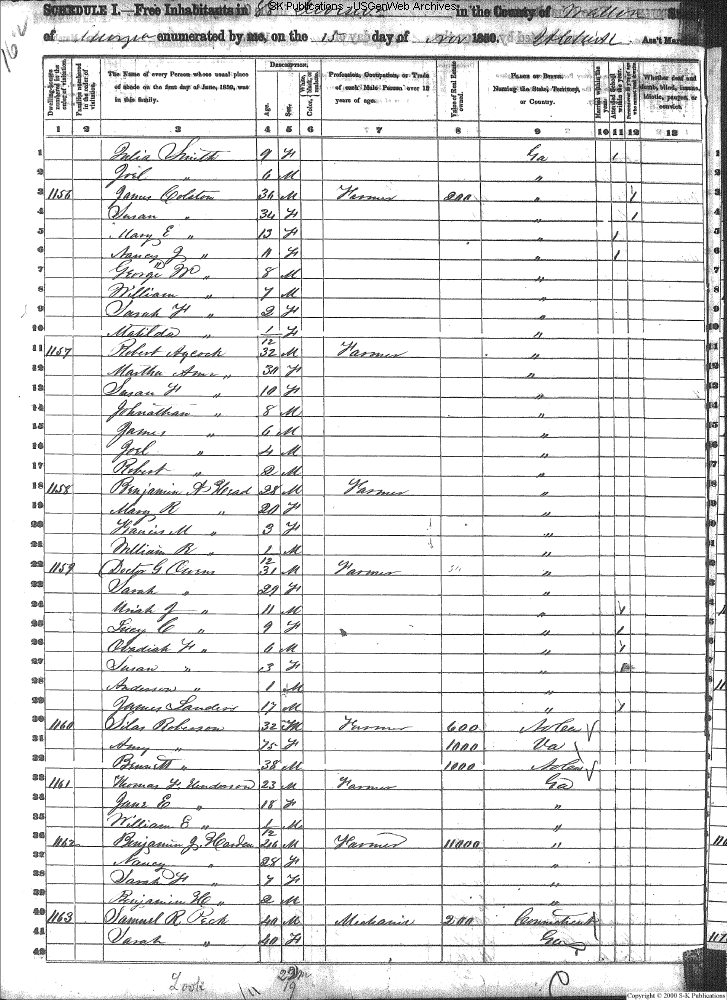 SK Publications - USGenWeb Archives
SCHEDULE I.—Free Inhabitants in 88 in the County of Walton
of Georgia enumerated by me, on the 15 day of Nov 1850. Ass't Mar
162
Dwelling-houses numbered in the order of visitation.
Families numbered in the order of visitation.
The Name of every Person whose usual place of abode on the first day of June, 1850, was in this family.
DESCRIPTION.
Age.
Sex.
White, black, or mulatto.
Color,
Profession, Occupation, or Trade of each Male Person over 15 years of age.
Value of Real Estate owned.
PLACE OF BIRTH. Naming the State, Territory, or Country.
Married within the year.
Attended School within the year.
Whether deaf and dumb, blind, insane, idiotic, pauper, or convict.
1 2 3 4 5 6 7 8 9 10 11 12 13
1 Julia Smith 9 F Ga 1
2 Joel " 6 M "
3 1156 James Colston 36 M Farmer 200 " 1
4 Susan " 34 F " 1
5 Mary E " 13 F " 1
6 Nancy J " 11 F " 1
7 George W " 8 M "
8 William " 7 M "
9 Sarah F " 2 F "
10 Matilda " 1/12 F "
11 1157 Robert Aycock 32 M Farmer "
12 Martha Ann " 30 F "
13 Susan F " 10 F "
14 Johnathan " 8 M "
15 James " 6 M "
16 Joel " 4 M "
17 Robert " 2 M "
18 1158 Benjamin A Head 28 M Farmer "
19 Mary R " 20 F "
20 Francis M " 3 F "
21 William R " 1/12 M "
22 1159 Doctor G Owens 31 M Farmer "
23 Sarah " 29 F "
24 Uriah J " 11 M " 1
25 Lucy C " 9 F " 1
26 Obadiah F " 6 M " 1
27 Susan " 3 F "
28 Anderson " 1 M "
29 James Landers 17 M " 1
30 1160 Silas Roberson 32 M Farmer 600 No Ca
31 Amy " 75 F 1000 Va
32 Bennett " 38 M 1000 No Ca
33 1161 Thomas F. Henderson 23 M Farmer Ga
34 Jane E " 18 F "
35 William E " 1/12 M "
36 1162 Benjamin J Harden 26 M Farmer 11000 "
37 Nancy " 28 F "
38 Sarah F " 7 F "
39 Benjamin H " 2 M "
40 1163 Samuel R Peck 40 M Mechanic 200 Connecticut
41 Sarah " 40 F Ga
42
Copyright © 2000 S-K Publications